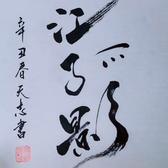 江影
辛丑春天志書